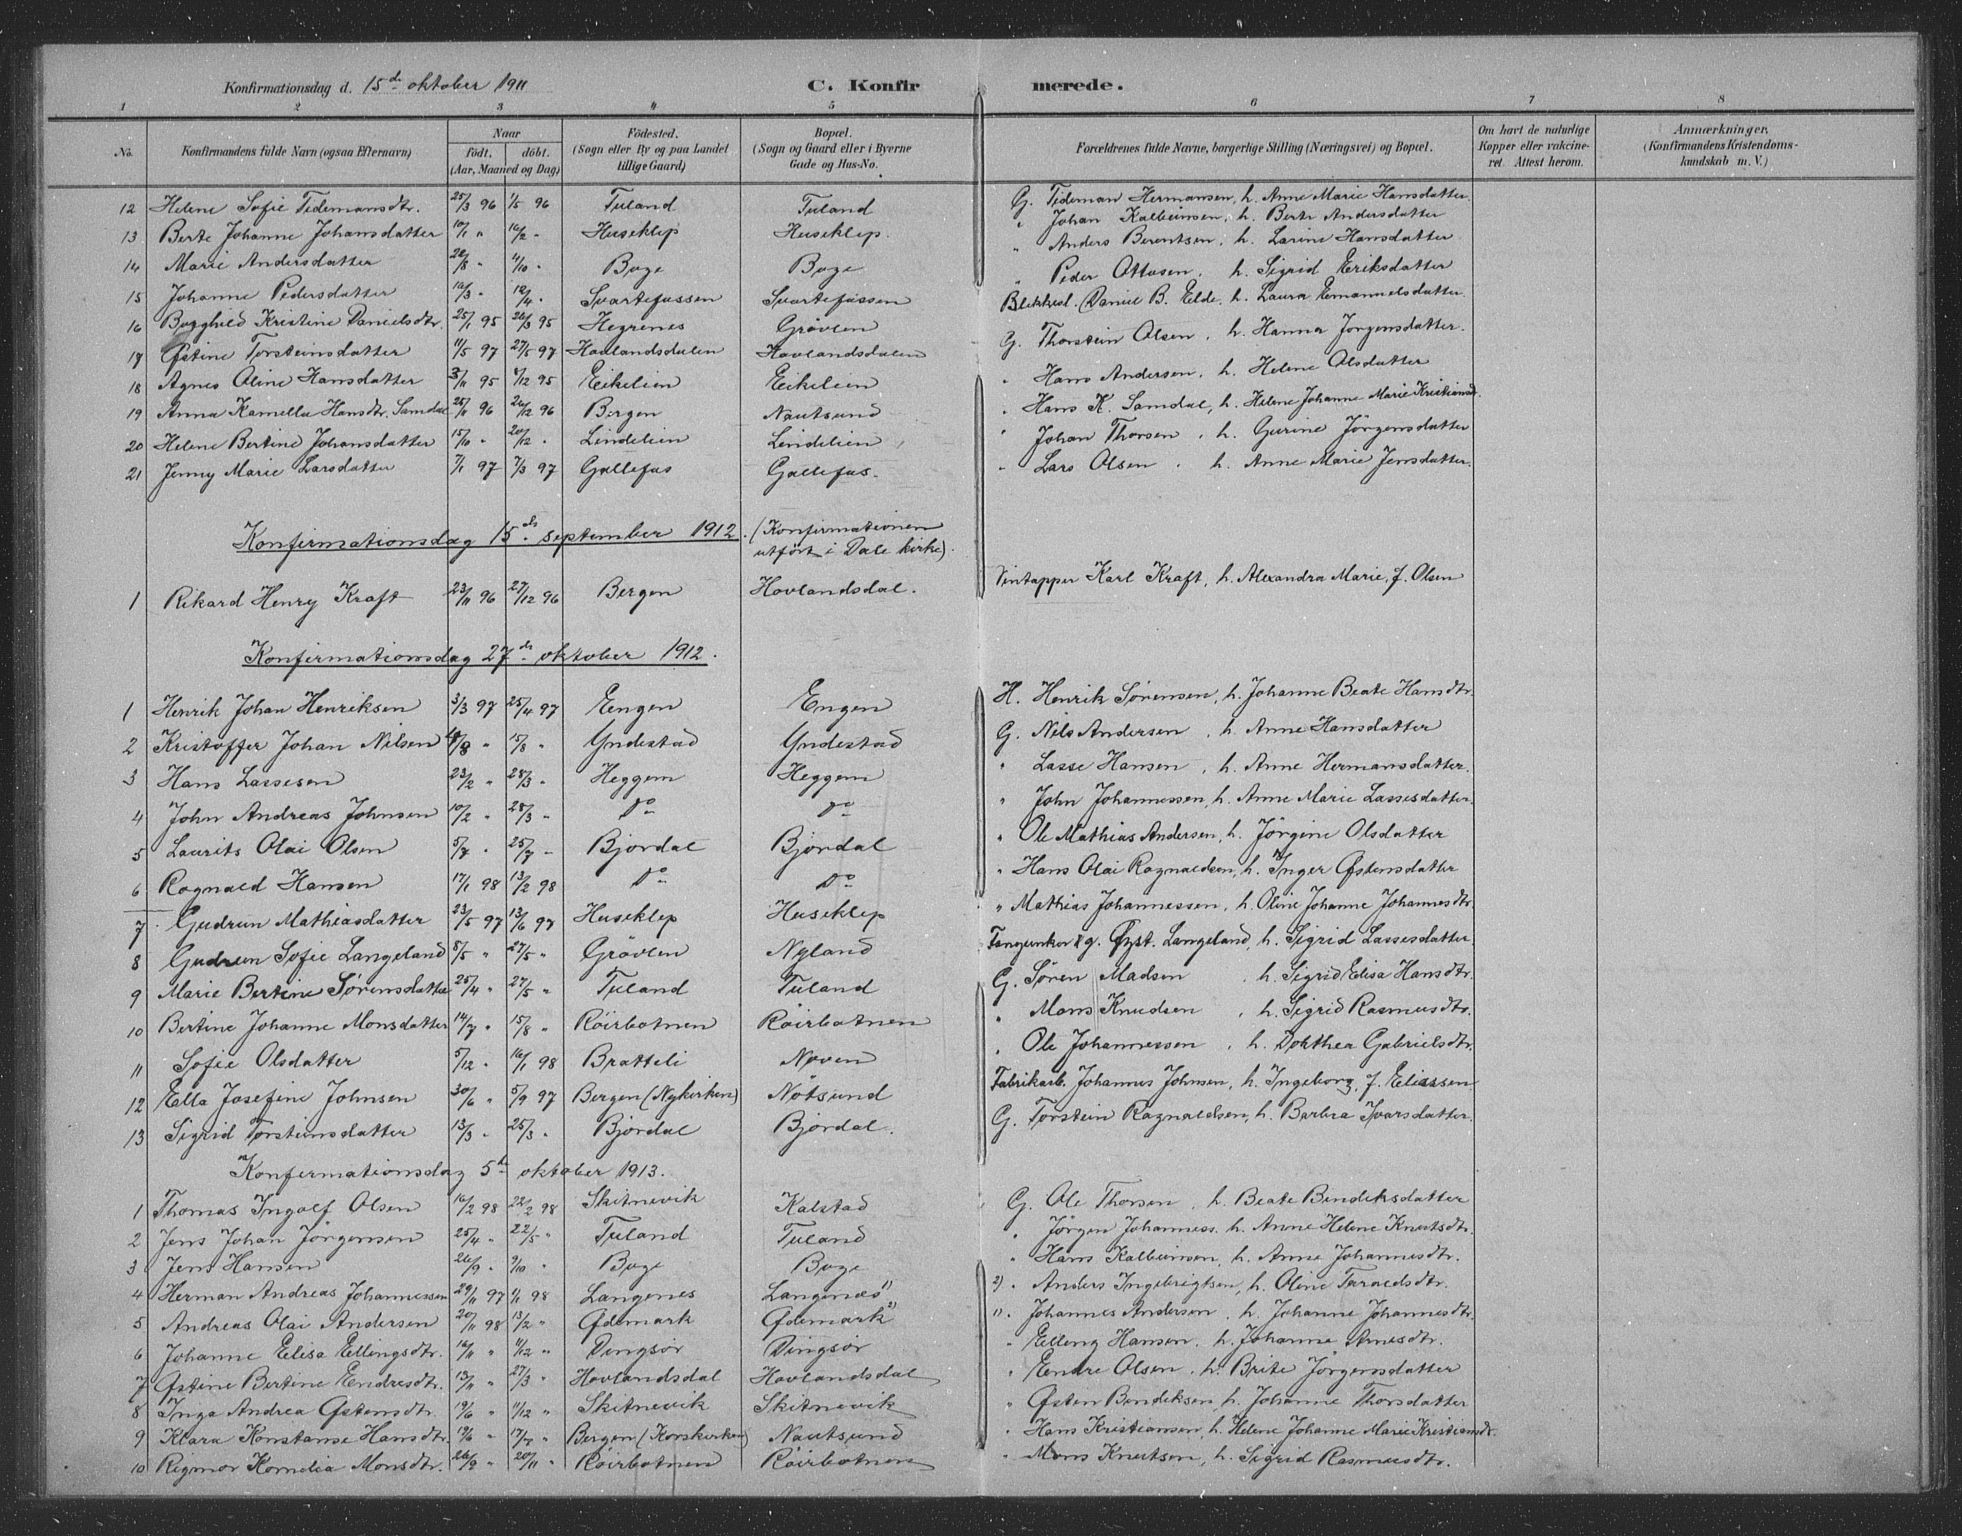 Konfirmationsdag d. 15de oktober 1911 C. Konfirmerede.
1 2 3 4 5 6 7 8
No. Konfirmandens fulde Navn (ogsaa Efternavn) Naar født, døbt. (Aar, Maaned og Dag) Fødested. (Sogn eller By og paa Landet tillige Gaard) Bopæl. (Sogn og Gaard eller i Byerne Gade og Hus-No. Forældrenes fulde Navne, borgerlige Stilling (Næringsvei) og Bopæl. Om havt de naturlige Kopper eller vaccineret. Attest herom. Anmærkninger. (Konfirmandens Kristendomskundskab m. V.)
12 Helene Sofie Tidemansdtr. 25/3 96 1/5 96 Tuland Tuland G. Tideman Hermansen, h. Anne Marie Hansdatter
13 Berte Johanne Johansdatter 10/1 " 16/2 " Huseklep Huseklep. " Johan Kalbeinsen, h. Berte Andersdatter
14 Marie Andersdatter 22/8 " 4/10 " Boge Boge " Anders Berentsen, h. Larine Hansdatter
15 Johanne Pedersdatter 16/3 " 12/4 " Svartefossen Svartefossen " Peder Ottosen, h. Sigrid Eriksdatter
16 Boghild Kristine Danielsdtr. 25/1 95 26/3 95 Hegrenes Grøvlen Blikksl. Daniel B. Elde, h. Laura Emanuelsdatter
17 Østine Torsteinsdatter 11/5 97 27/5 97 Hovlandsdalen Hovlandsdalen G. Thorstein Olsen, h. Hanna Jørgensdatter.
18 Agnes Oline Hansdatter 3/11 95 8/12 95 Eikelien Eikelien " Hans Andersen, h. Helene Olsdatter
19 Anna Kamella Hansdtr. Samdal 25/11 96 26/12 96 Bergen Nautsund " Hans K. Samdal, h. Helene Johanne Marie Kristiansdt.
20 Helene Bertine Johansdatter 15/10 " 20/12 " Lindelien Lindelien " Johan Thorsen, h. Gurine Jørgensdatter
21 Jenny Marie Larsdatter 7/1 97 7/3 97 Gallefos Gallefos. " Lars Olsen, h. Anne Marie Jensdatter.
Konfirmationsdag 15de september 1912. (Konfirmationen utført i Dale kirke).
1 Rikard Henry Kraft 23/11 96 27/12 96 Bergen Hovlandsdal. Vintapper Karl Kraft, h. Alexandra Marie, f. Olsen
Konfirmationsdag 27de oktober 1912.
1 Henrik Johan Henriksen 3/3 97 25/4 97 Engen Engen H. Henrik Sørensen, h. Johanne Beate Hansdtr.
2 Kristoffer Johan Nilsen " 15/8 " Yndestad Yndestad G. Nils Andersen, h. Anne Hansdatter
3 Hans Lassesen 23/2 " 28/3 " Heggem Heggem " Lasse Hansen, h. Anne Hermansdatter.
4 John Andreas Johnsen 10/2 " 28/3 " Do Do " John Johannessen, h. Anne Marie Lassesdatter.
5 Laurits Olai Olsen 5/7 " 25/7 " Bjordal Bjordal " Ole Mathias Andersen, h. Jørgine Olsdatter
6 Ragnald Hansen 17/1 98 13/2 98 Do Do " Hans Olai Ragnaldsen, h. Inger Østensdatter
7 Gudrun Mathiasdatter 23/5 97 13/6 97 Huseklep Huseklep " Mathias Johannessen, h. Oline Johanne Johannesdtr.
8 Gudrun Sofie Langeland 5/5 " 27/5 " Grøvlen Nyland Øyst. Langeland, h. Sigrid Lassesdatter.
9 Marie Bertine Sørensdatter 25/4 " 27/5 " Tuland Tuland G. Søren Madsen, h. Sigrid Elisa Hansdtr.
10 Bertine Johanne Monsdatter 14/7 " 15/8 " Røirbotnen Røirbotnen " Mons Knudsen, h. Sigrid Rasmusdtr.
11 Sofie Olsdatter 5/12 " 16/1 98 Bratteli Noven " Ole Johannessen, h. Dorthea Gabrielsdtr.
12 Ella Josefine Johnsen 30/6 " 5/9 97 Bergen (Nykirken) Nøtsund Fabrikarb. Johannes Johnsen, h. Ingeborg, f. Eliassen
13 Sigrid Torsteinsdatter 13/3 " 25/3 " Bjordal Bjordal. G. Torstein Ragnaldsen, h. Barbra Ivarsdatter.
Konfirmationsdag 5te oktober 1913.
1 Thomas Ingolf Olsen 16/2 98 22/2 98 Skitnevik Kalstad G. Ole Thorsen, h. Beate Bendiksdatter
2 Jens Johan Jørgensen 25/4 " 22/5 " Tuland Tuland " Jørgen Johanness. h. Anne Helene Knutsdtr.
3 Jens Hansen 26/9 " 9/10 " Boge Boge " Hans Kalbeinsen, h. Anne Johannesdtr.
4 Herman Andreas Johannessen 29/11 97 1/1 98 Langenes Langenæs 1) 2) " Anders Ingebrigtsen, h. Oline Taraldsdtr.
5 Andreas Olai Andersen 20/11 98 13/2 " Ødemark Ødemark 2) 1) " Johannes Andersen, h. Johanne Johannesdtr.
6 Johanne Elisa Ellingsdtr. 16/11 " 11/12 " Dingsør Dingsør " Elling Hansen, h. Johanne Arnesdtr.
7 Østine Bertine Endresdtr. 13/11 " 27/3 " Hovlandsdal Hovlandsdal " Endre Olsen, h. Brite Jørgensdatter
8 Inga Andrea Østensdtr. 19/6 " 11/12 " Skitnevik Skitnevik " Østen Bendiksen, h. Johanne Thorsdatter
9 Klara Konstanse Hansdtr. 17/6 " 17/7 " Bergen (Korskirken) Nautsund " Hans Kristiansen, h. Helene Johanne Marie Kristiansdtr.
10 Rigmor Kornelia Monsdtr. 26/9 " 20/11 " Røirbotnen Røirbotnen " Mons Knutsen, h. Sigrid Rasmusdtr.